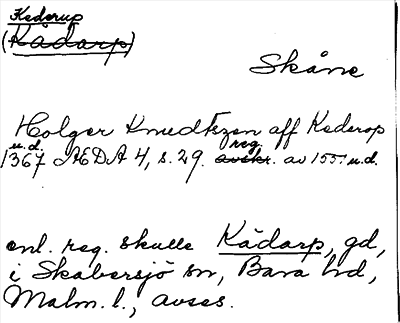 Kederup
(Kådarp)
Skåne
Holger Knudtzen aff Kederop
u.d. reg.
1367 ÆDA 4, s. 29. avskr. av 155- u.d.
enl. reg. skulle Kådarp, gd,
i Skabersjö sn, Bara hd,
Malm. l., avses.